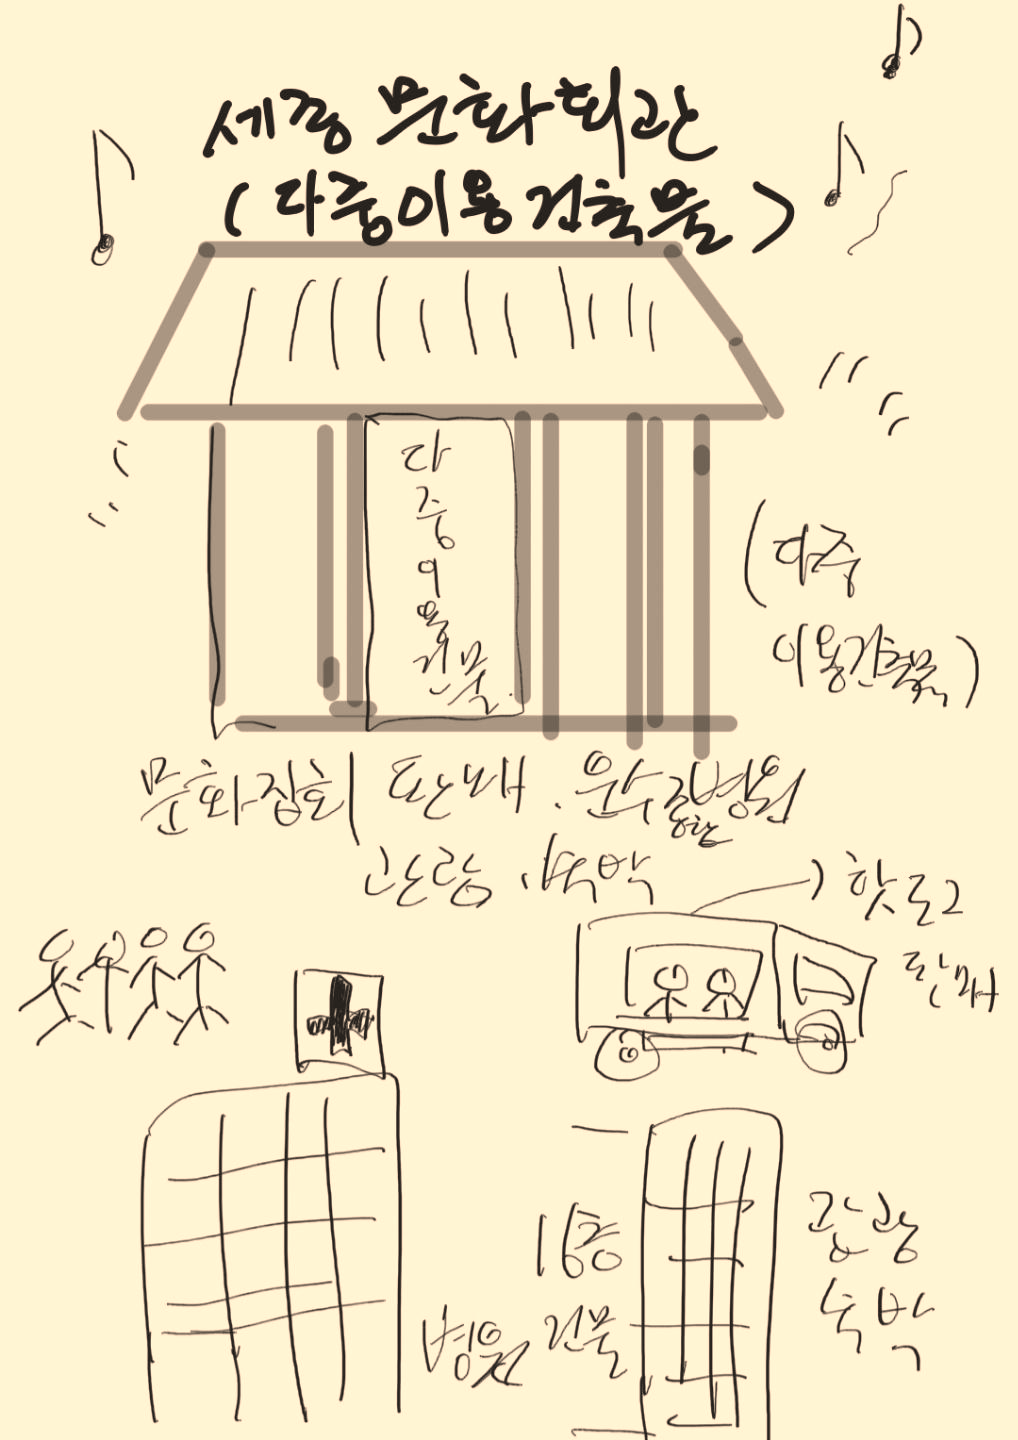 세종 문화회관
(다중이용 건축물)
다
중
이
용
건물
(다중
이용건축물)
문화집회 판매 . 운수 종합병원
관광 . 숙박
핫도그
판매
병원
16층
건물
관광
숙박